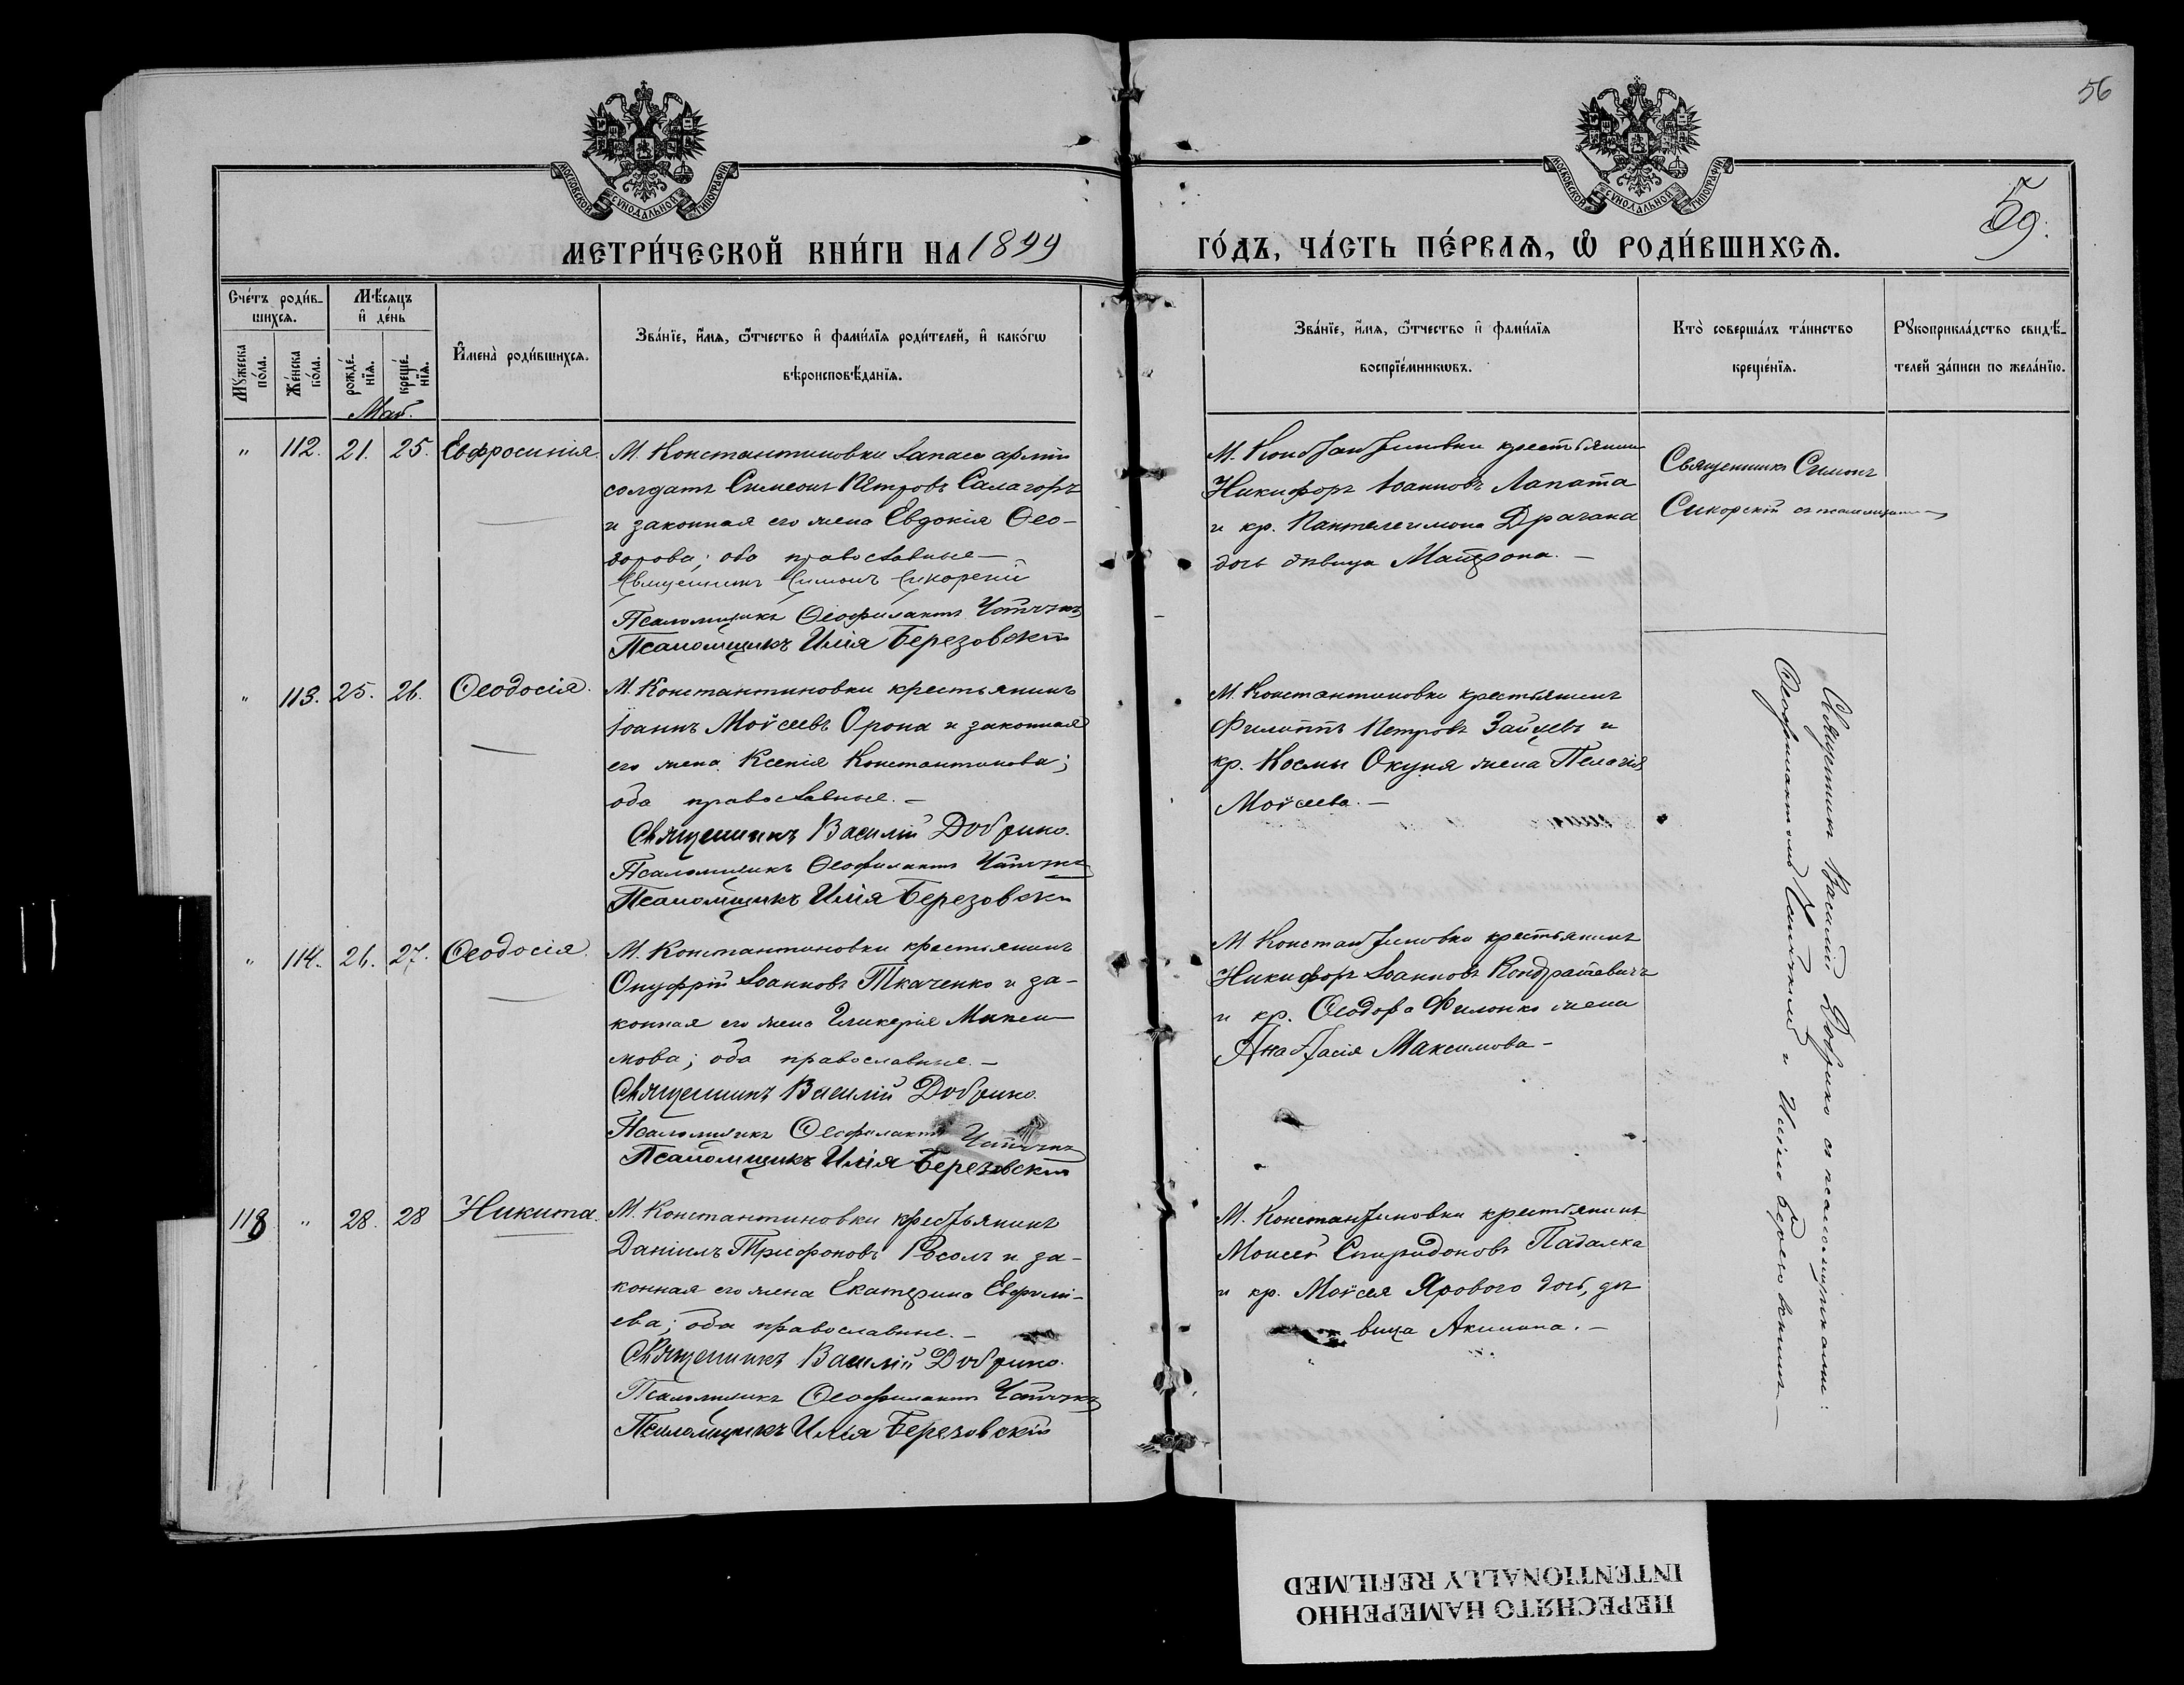 56
59.
МОСКОВСКОЙ СѴНОДАЛЬНОЙ ТИПОГРАФІИ
МОСКОВСКОЙ СѴНОДАЛЬНОЙ ТИПОГРАФІИ
МЕТРИ́ЧЕСКОЙ КНИ́ГИ НА 1899 ГО́ДЪ, ЧА́СТЬ ПЕ́РВАѦ, Ѡ РОДИ́ВШИХСѦ.
Сче́тъ роди́в-
шихсѧ.
Мѣ́сѧцъ
и҆ де́нь
Мꙋ́жеска по́ла.
Же́нска по́ла.
рожде́-
нїѧ.
креще́-
нїѧ.
И҆мена̀ роди́вшихсѧ.
Зва́нїе, и҆́мѧ, ѻ҆́тчество и҆ фами́лїѧ роди́телей, и҆ како́гѡ
вѣроисповѣ́данїѧ.
Зва́нїе, и҆́мѧ, ѻ҆́тчество и҆ фами́лїѧ
воспрїе́мникѡвъ.
Кто̀ соверша́лъ та́инство
креще́нїѧ.
Рꙋкоприкла́дство свидѣ́-
телей за́писи по жела́нїю.
Май.
" 112. 21. 25. Евфросинія.
М. Константиновки запаса арміи
солдатъ Симеонъ Петровъ
и законная его жена Евдокія Ѳео-
дорова; оба православные —
Священникъ Симонъ Сикорскій
Псаломщикъ Ѳеофилактъ
Псаломщикъ Илія Березовскій
М. Константиновки крестьянинъ
Никифоръ Іоанновъ Лапата
и кр. Пантелеимона Драгана
дочь дѣвица Матрона. —
Священникъ Симонъ
Сикорскій съ псаломщиками
" 113. 25. 26. Ѳеодосія.
М. Константиновки крестьянинъ
Іоаннъ Моѵсеевъ Орона и законная
его жена Ксенія Константинова;
оба православные. —
Священникъ Василій Добрино.
Псаломщикъ Ѳеофилактъ
Псаломщикъ Илія Березовскій
М. Константиновки крестьянинъ
Филиппъ Петровъ Зайцевъ и
кр. Космы Окуня жена Пелагія
Моѵсеева. —
" 114. 26. 27. Ѳеодосія.
М. Константиновки крестьянинъ
Онуфрій Іоанновъ Ткаченко и за-
конная его жена Гликерія Макси-
мова; оба православные. —
Священникъ Василій Добрино.
Псаломщикъ Ѳеофилактъ
Псаломщикъ Илія Березовскій
М. Константиновки крестьянинъ
Никифоръ Іоанновъ Кондратевичъ
и кр. Ѳеодора Филонко жена
Анастасія Максимова —
118 " 28. 28 Никита.
М. Константиновки крестьянинъ
Даніилъ Трифоновъ Росолъ и за-
конная его жена Екатерина Евфимі-
ева; оба православные. —
Священникъ Василій Добрино.
Псаломщикъ Ѳеофилактъ
Псаломщикъ Илія Березовскій
М. Константиновки крестьянинъ
Моисей Спиридоновъ Падалка
и кр. Моѵсея Ярового дочь, дѣ-
вица Акилина. —
Священникъ Василій Добрино съ псаломщиками:
Ѳеофилактомъ и Иліею Березовскимъ —
ПЕРЕСНЯТО НАМЕРЕННО
INTENTIONALLY REFILMED